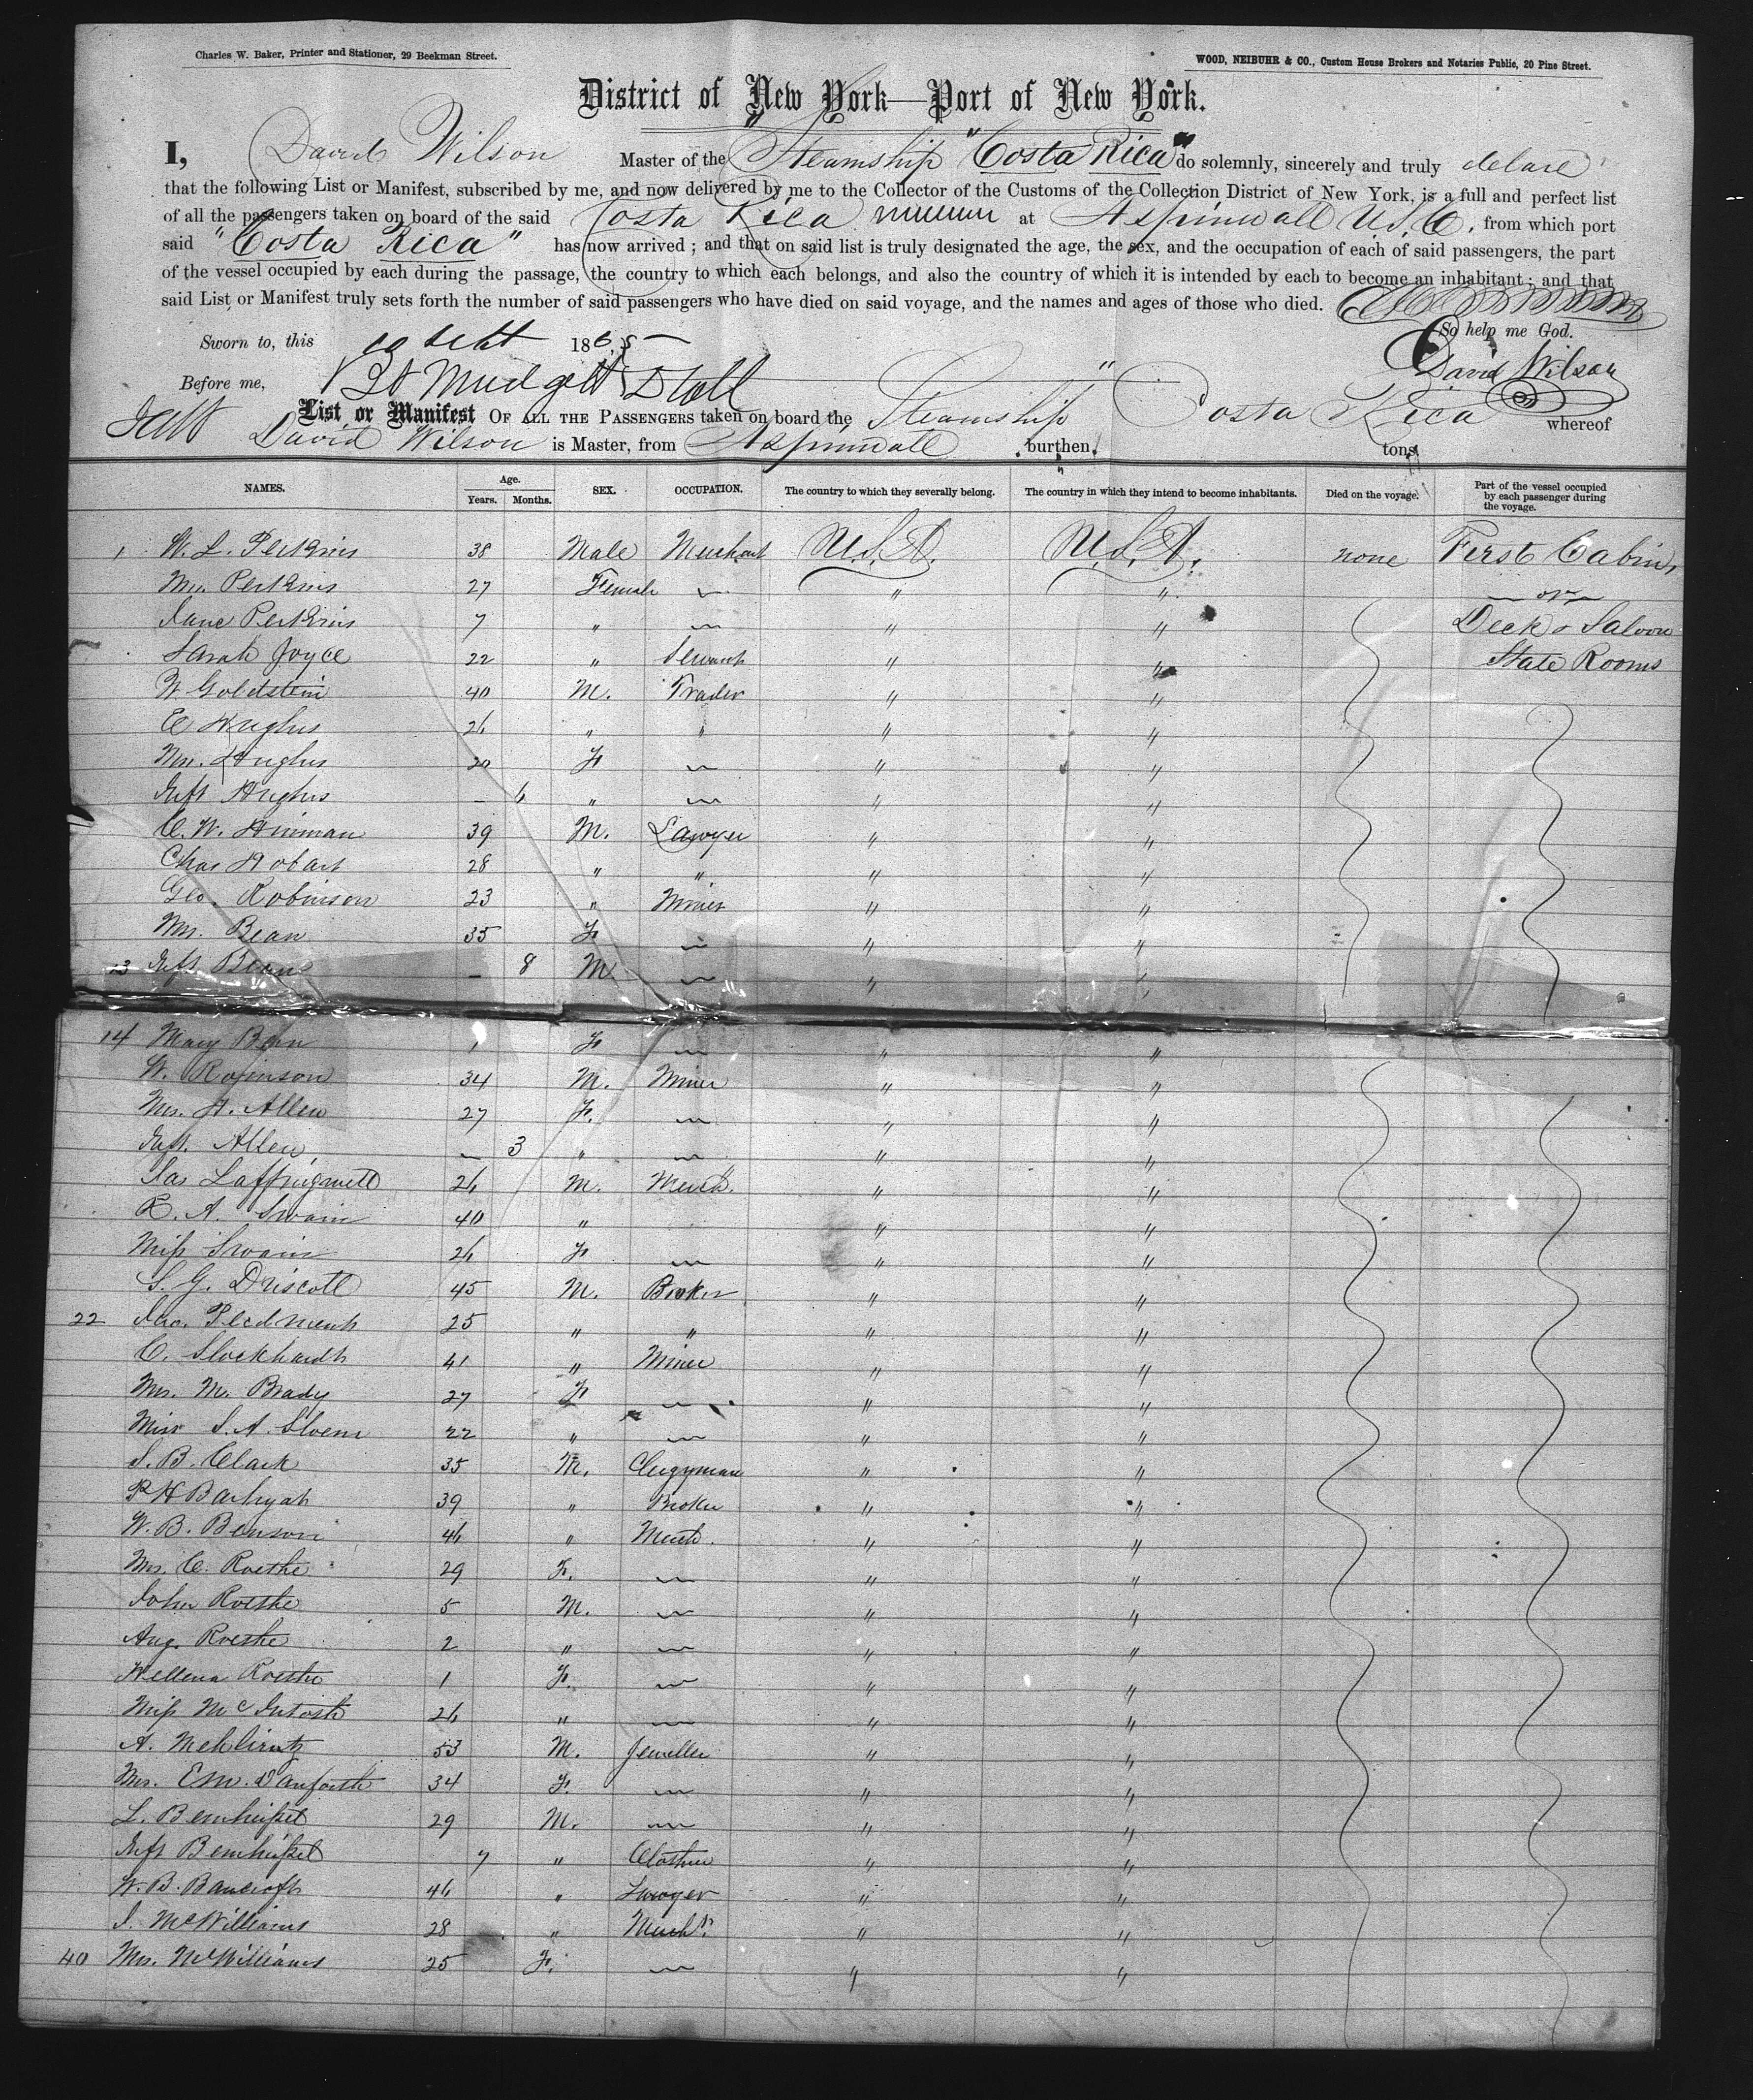 Charles W. Baker, Printer and Stationer, 29 Beekman Street.
WOOD, NEIBUHR & CO., Custom House Brokers and Notaries Public, 20 Pine Street.
District of New York—Port of New York.
I, David Wilson Master of the Steamship "Costa Rica" do solemnly, sincerely and truly declare
that the following List or Manifest, subscribed by me, and now delivered by me to the Collector of the Customs of the Collection District of New York, is a full and perfect list
of all the passengers taken on board of the said Costa Rica at Aspinwall U.S.C. from which port
said "Costa Rica" has now arrived; and that on said list is truly designated the age, the sex, and the occupation of each of said passengers, the part
of the vessel occupied by each during the passage, the country to which each belongs, and also the country of which it is intended by each to become an inhabitant; and that
said List or Manifest truly sets forth the number of said passengers who have died on said voyage, and the names and ages of those who died.
So help me God.
Sworn to, this Sept 1865
David Wilson
Before me,
List or Manifest OF ALL THE PASSENGERS taken on board the Steamship "Costa Rica whereof
David Wilson is Master, from Aspinwall burthen tons
NAMES. Age. Years. Months. SEX. OCCUPATION. The country to which they severally belong. The country in which they intend to become inhabitants. Died on the voyage. Part of the vessel occupied by each passenger during the voyage.
1 W. L. Perkins 38 Male Merchant U.S.A. U.S.A. none First Cabin,
Mrs. Perkins 27 Female " " or
Jane Perkins 7 " " " Deck & Saloon
Sarah Joyce 22 " Servant " " State Rooms
W Goldstein 40 M. Trader " "
E Hughes 26 " " " "
Mrs. Hughes 20 F " "
Inft Hughes – 6 " " "
C. W. Hinman 39 M. Lawyer " "
Chas Hobart 28 " " " "
Geo. Robinson 23 " Miner " "
Mrs. Bean 35 F " "
13 Inft Bean – 8 M " "
14 Mary Bean 1 F " "
W. Robinson 34 M. Miner " "
Mrs. H. Allen 27 F. " "
Inft. Allen – 3 " " "
Jas Laffingwell 26 M. Merch. " "
R. A. Swain 40 " " "
Miss Swain 26 F " "
S. G. Driscoll 45 M. Broker " "
22 Jno. Piedment 25 " " " "
C. Stockhardt 41 " Miner " "
Mrs. M. Brady 27 F " "
Miss S. A. 22 " " "
S. B. Clark 35 M. Clergyman " "
P H 39 " Broker " "
W. B. Benson 46 " Merch. " "
Mrs. C. Roethe 29 F. " "
John Roethe 5 M. " "
Aug. Roethe 2 " " "
Wellena Roethe 1 F. " "
Miss McIntosh 26 " " "
A. 53 M. Jeweller " "
Mrs. E M. Danforth 34 F. " "
L. Bernheissel 29 M. " "
Inft Bernheissel 7 " Clothier " "
W. B. Bancroft 46 " Lawyer " "
J. McWilliams 28 " Mercht. " "
40 Mrs. McWilliams 25 F. " "